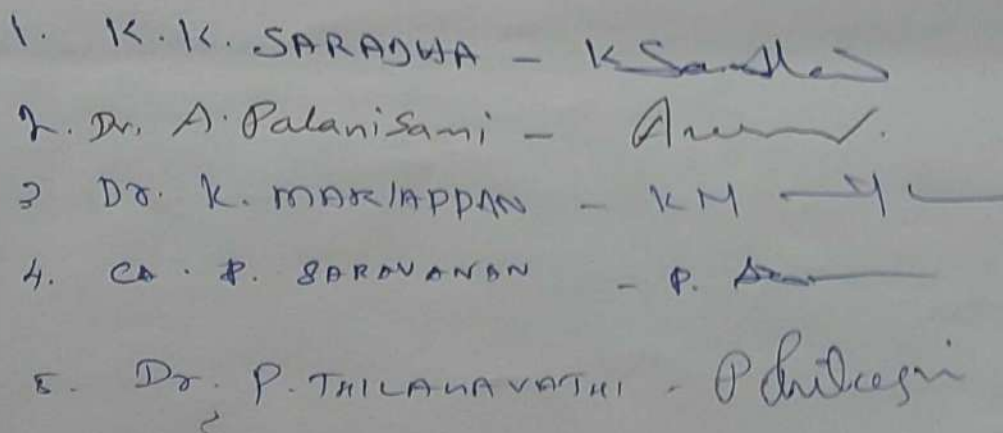 1. K.K. SARADHA -
2. Dr. A. Palanisami -
3 Dr. K. MARIAPPAN - KM
4. CA. P. SARAVANAN - P.
5. Dr. P. THILAHAVATHI - P